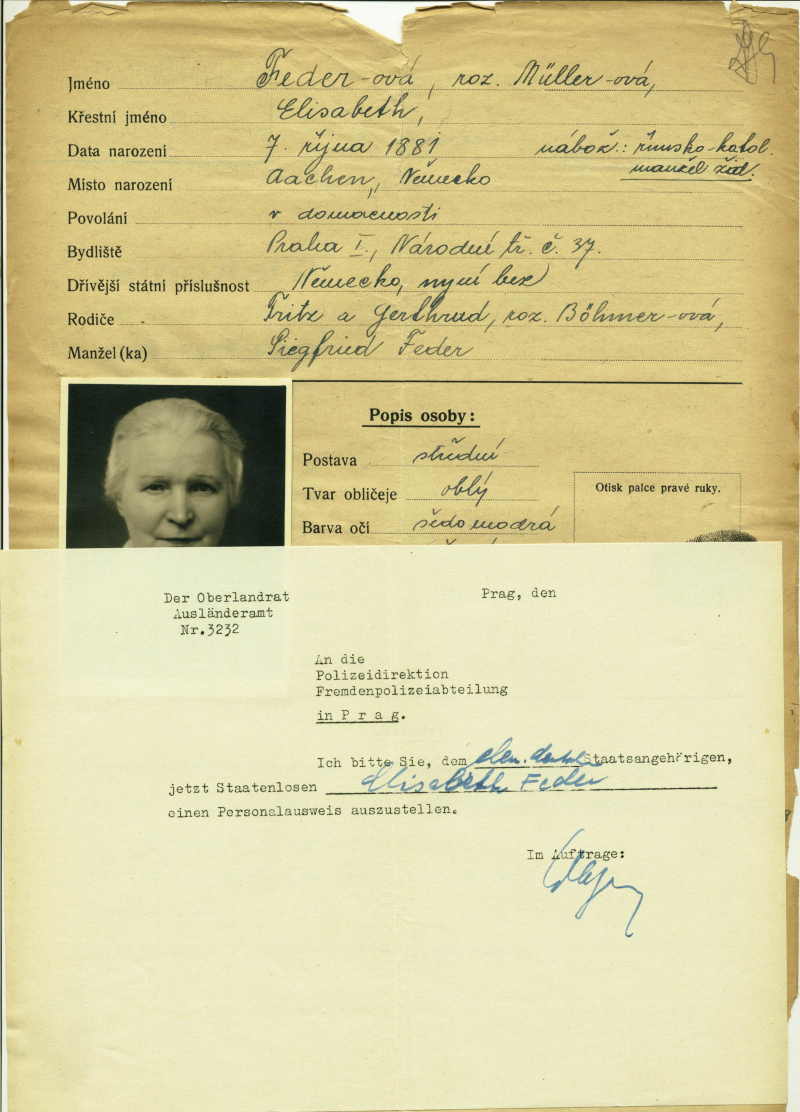 Jméno Feder-ová, roz. Müller-ová,
Křestní jméno Elisabeth,
Data narození 7. října 1881 nábož.: římsko-katol.
manžel žid.
Místo narození Aachen, Německo
Povolání v domacnosti
Bydliště Praha I., Národní tř. č. 37.
Dřívější státní příslušnost Německo, nyní bez
Rodiče Fritz a Gerthrud, roz. Böhmer-ová,
Manžel(ka) Siegfried Feder
Popis osoby:
Postava střední
Tvar obličeje oblý
Barva očí šedomodrá
Otisk palce pravé ruky.
Der Oberlandrat
Ausländeramt
Nr.3232
Prag, den
An die
Polizeidirektion
Fremdenpolizeiabteilung
in Prag.
Ich bitte Sie, dem Staatsangehörigen,
jetzt Staatenlosen Elisabeth Feder
einen Personalausweis auszustellen.
Im Auftrage: